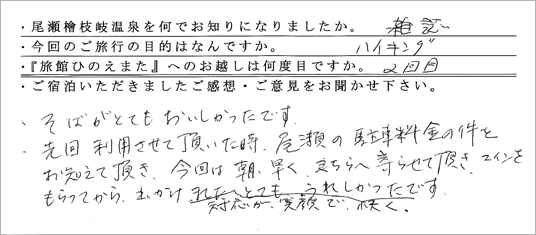 ・尾瀬檜枝岐温泉を何でお知りになりましたか。 雑誌
・今回のご旅行の目的はなんですか。 ハイキング
・『旅館ひのえまた』へのお越しは何度目ですか。 2回目
・ご宿泊いただきましたご感想・ご意見をお聞かせ下さい。
・そばがとてもおいしかったです。
・先回利用させて頂いた時、尾瀬の駐車料金の件を
お知えて頂き、今回は朝、早く、立ちらへ寄らせて頂き、コインを
もらってから、出かけれたべとても、うれしかったです。
対応が、笑顔で、快く。